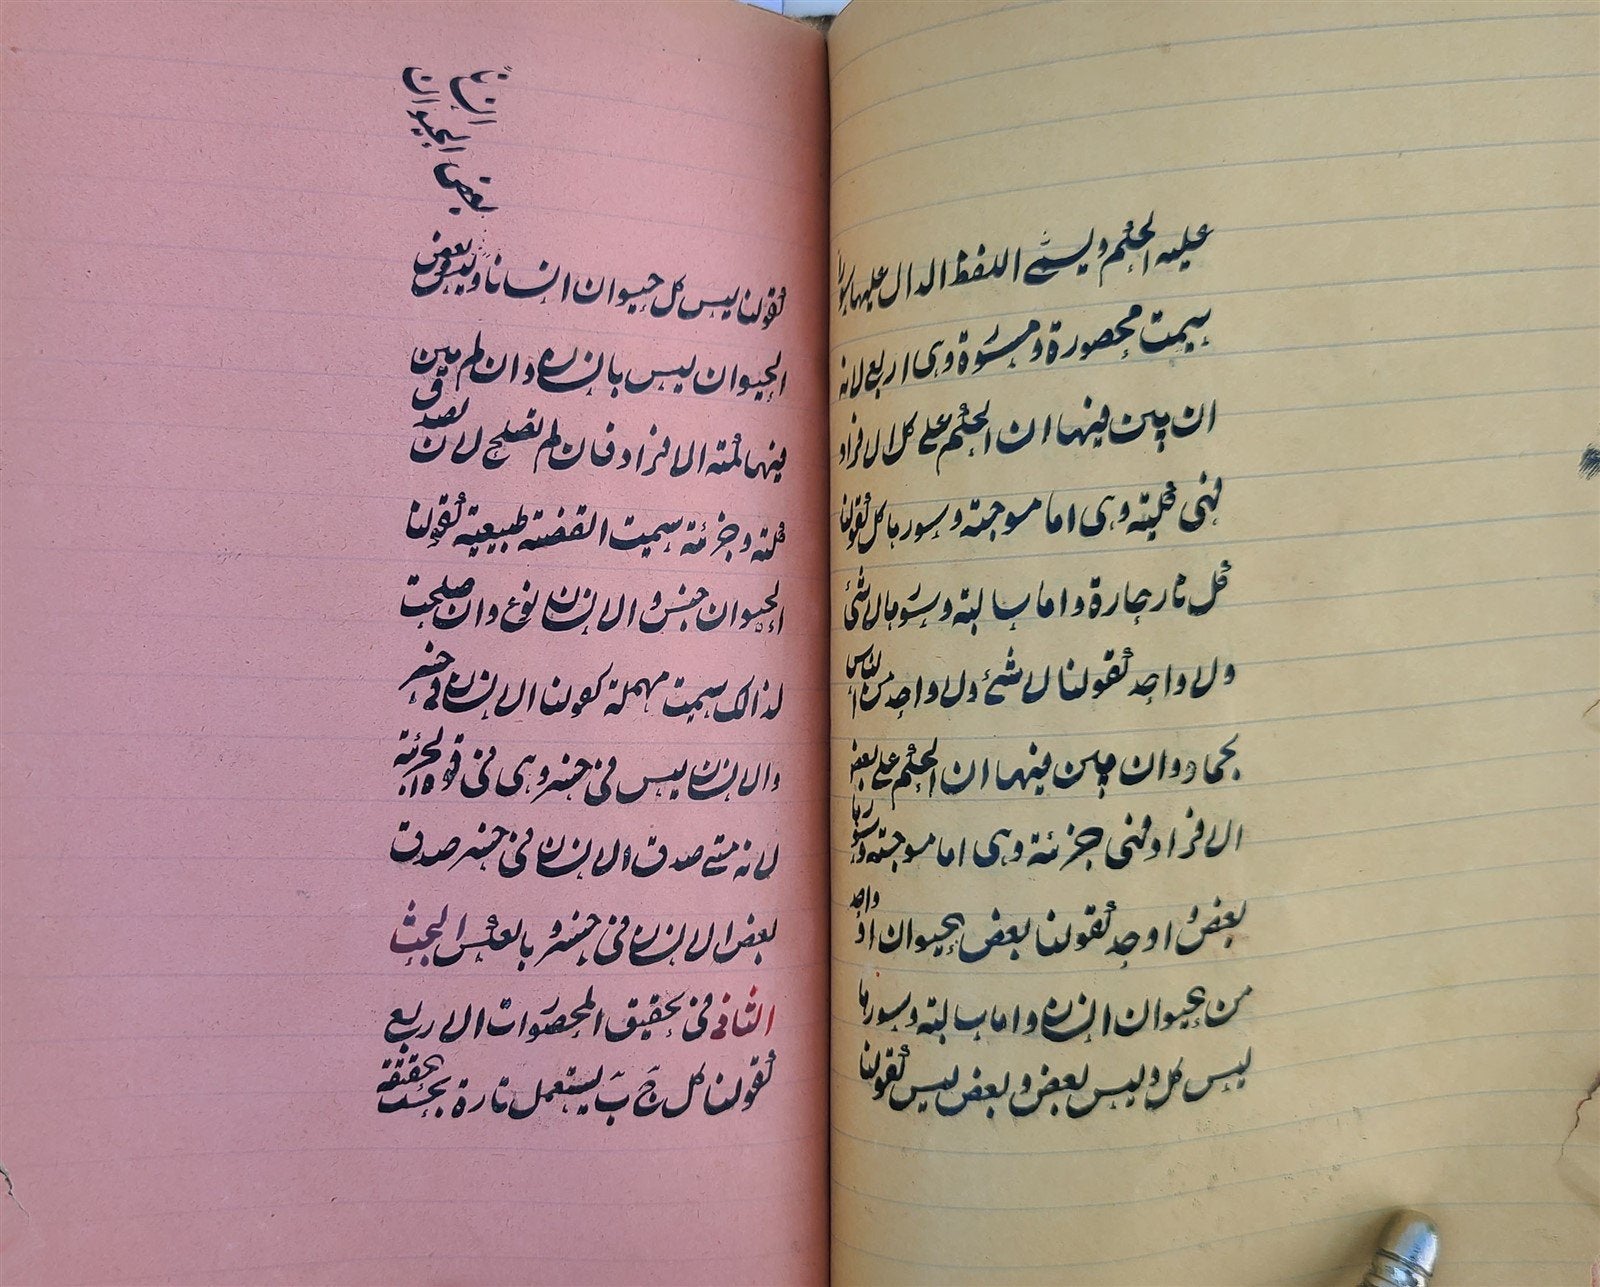 عليه الحكم ويسمى اللفظ الدال عليها سورا
سميت محصورة ومسورة وهى اربع لانه
ان بين فيها ان الحكم على كل الافراد
فهى كلية وهى اما موجبة وسورها كل كقولنا
كل نار حارة واما سالبة وسورها لا شئ
ولا واحد كقولنا لا شئ ولا واحد من الناس
بجماد وان بين فيها ان الحكم على بعض
الافراد فهى جزئة وهى اما موجبة وسورها
بعض او احد كقولنا بعض الحيوان او واحد
من حيوان انسان واما سالبة وسورها
ليس كل وليس بعض وبعض ليس كقولنا
كقولنا ليس كل حيوان انسانا وليس بعض
بعض الحيوان انسانا
الحيوان ليس بانسان وان لم يبين
فيها كمية الافراد فان لم تصلح لان تصدق
كلية وجزئة سميت القضية طبيعية كقولنا
الحيوان جنس والانسان نوع وان صلحت
لذالك سميت مهملة كقولنا الانسان فى خسر
والانسان ليس فى خسر وهى فى قوة الجزئية
لانه متى صدق الانسان فى خسر صدق
بعض الانسان فى خسر وبالعكس البحث
الثانى فى تحقيق المحصورات الاربع
كقولنا كل ج ب يستعمل تارة بحسب الحقيقة